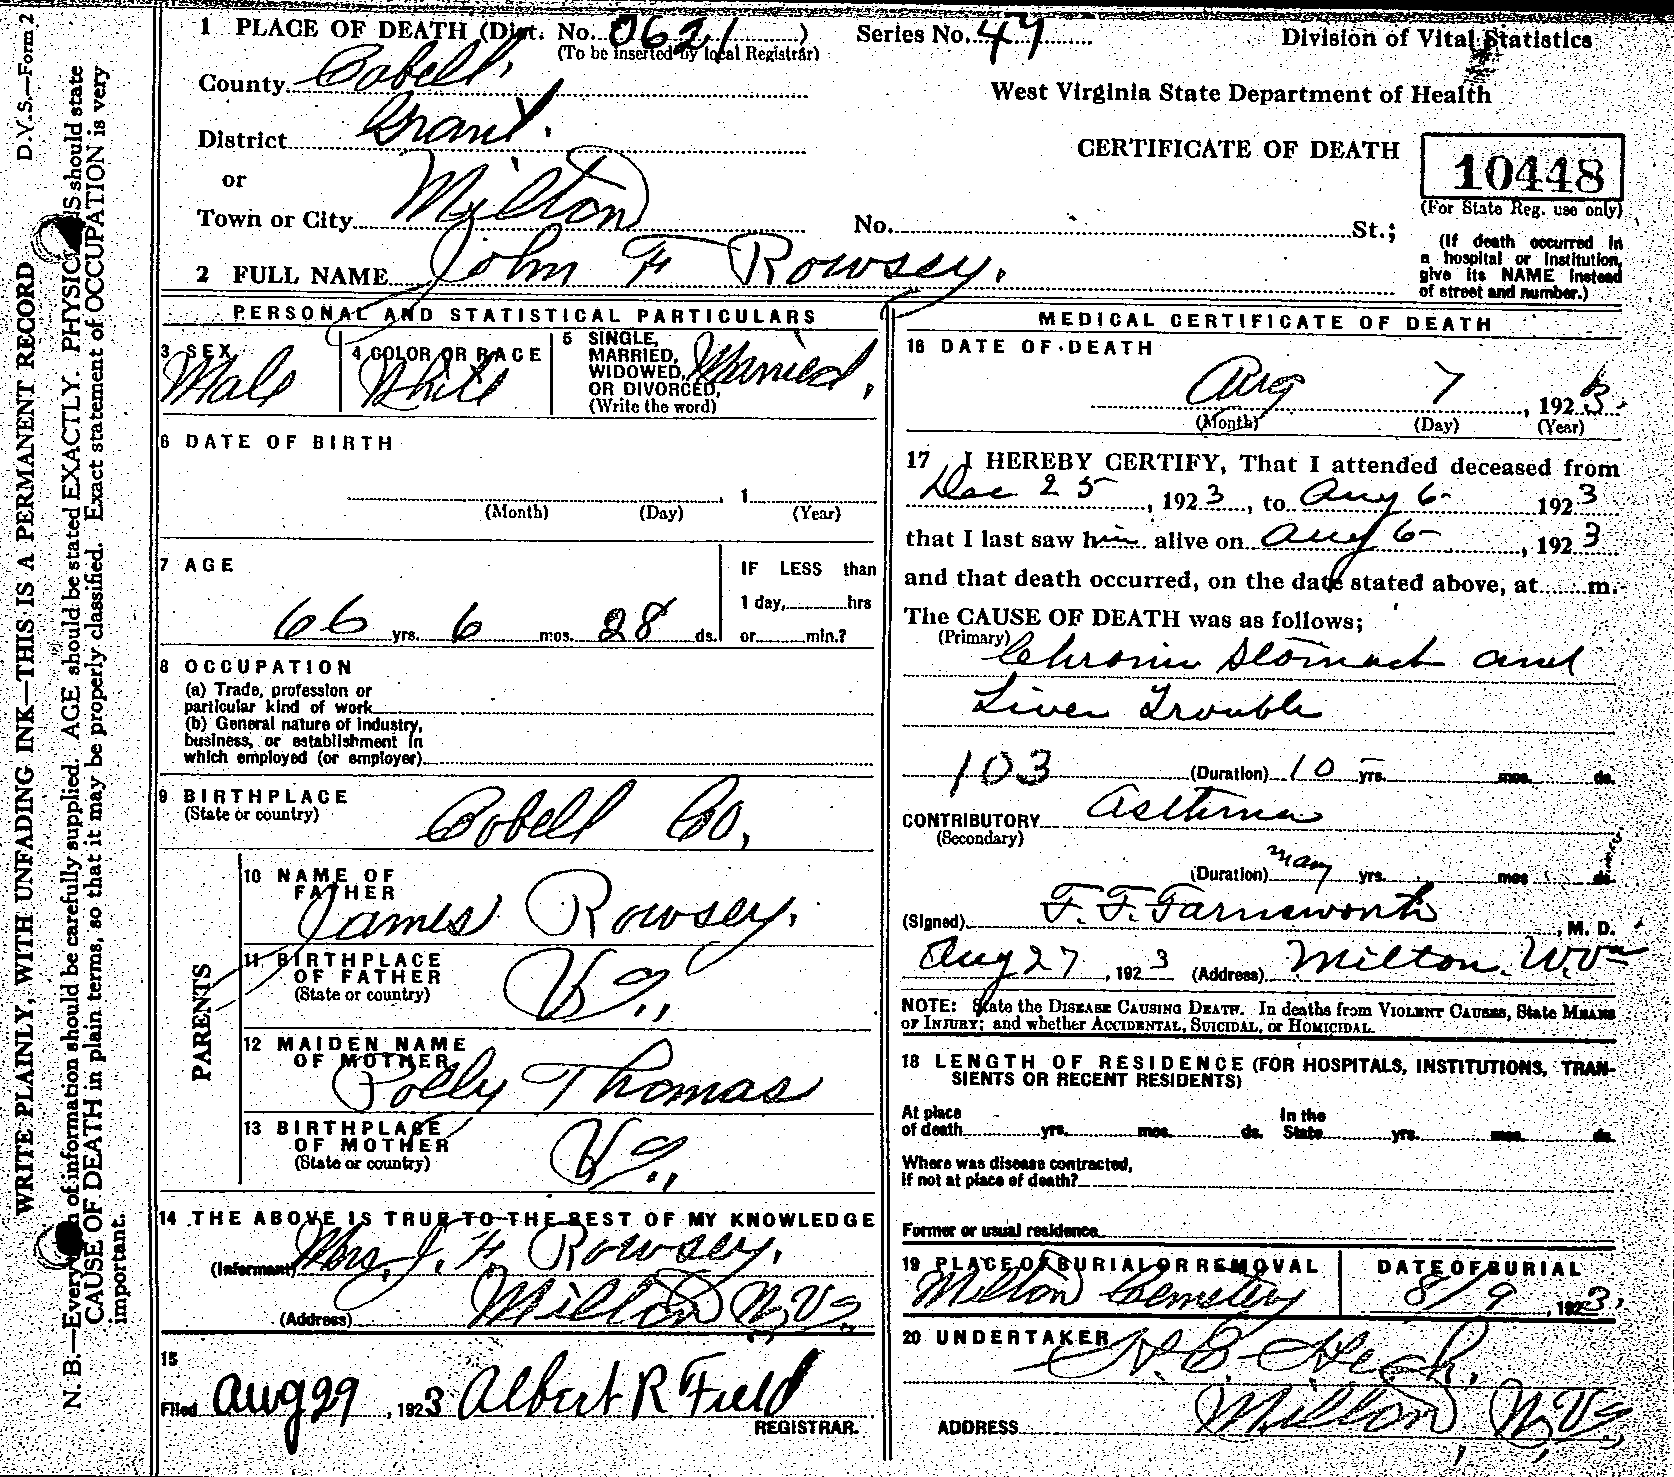 D.V.S.—Form 2
WRITE PLAINLY, WITH UNFADING INK—THIS IS A PERMANENT RECORD
N. B.—Every of information should be carefully supplied. AGE should be stated EXACTLY. PHYSICIANS should state
CAUSE OF DEATH in plain terms, so that it may be properly classified. Exact statement of OCCUPATION is very
important.
1 PLACE OF DEATH (Dist. No. 0621)
(To be inserted by local Registrar)
Series No. 49
Division of Vital Statistics
County Cabell,
West Virginia State Department of Health
District Grant.
CERTIFICATE OF DEATH
10448
(For State Reg. use only)
or
Town or City Milton
No. St.;
(If death occurred in
a hospital or institution,
give its NAME instead
of street and number.)
2 FULL NAME John F Rowsey.
PERSONAL AND STATISTICAL PARTICULARS
3 SEX
Male
4 COLOR OR RACE
White
5 SINGLE,
MARRIED,
WIDOWED,
OR DIVORCED,
(Write the word)
Married,
6 DATE OF BIRTH
, 1
(Month) (Day) (Year)
7 AGE
66 yrs. 6 mos. 28 ds.
IF LESS than
1 day, hrs
or min.?
8 OCCUPATION
(a) Trade, profession or
particular kind of work
(b) General nature of industry,
business, or establishment in
which employed (or employer)
9 BIRTHPLACE
(State or country)
Cobell Co,
PARENTS
10 NAME OF
FATHER
James Rowsey.
11 BIRTHPLACE
OF FATHER
(State or country)
Va.,
12 MAIDEN NAME
OF MOTHER
Polly Thomas
13 BIRTHPLACE
OF MOTHER
(State or country)
Va.,
14 THE ABOVE IS TRUE TO THE BEST OF MY KNOWLEDGE
(Informant) Mrs. J. F. Rowsey.
(Address) Milton W. Va.
15
Filed Aug 29, 1923 Albert R Field
REGISTRAR.
MEDICAL CERTIFICATE OF DEATH
16 DATE OF DEATH
Aug 7, 1923.
(Month) (Day) (Year)
17 I HEREBY CERTIFY, That I attended deceased from
Dec 25, 1923, to Aug 6- 1923
that I last saw him alive on Aug 6-, 1923
and that death occurred, on the date stated above, at m.
The CAUSE OF DEATH was as follows;
(Primary) Chronic Stomach and
Liver Trouble
103 (Duration) 10 - yrs. mos. ds.
CONTRIBUTORY Asthma
(Secondary)
(Duration) many yrs. mos ds.
(Signed) F. F. Farnsworth, M. D.
Aug 27, 1923 (Address) Milton. W.Va
NOTE: State the DISEASE CAUSING DEATH. In deaths from VIOLENT CAUSES, State MEANS
OF INJURY; and whether ACCIDENTAL, SUICIDAL, or HOMICIDAL.
18 LENGTH OF RESIDENCE (FOR HOSPITALS, INSTITUTIONS, TRAN-
SIENTS OR RECENT RESIDENTS)
At place
of death yrs. mos. ds.
In the
State yrs. mos. ds.
Where was disease contracted,
If not at place of death?
Former or usual residence
19 PLACE OF BURIAL OR REMOVAL
Milton Cemetery
DATE OF BURIAL
8/9, 1923.
20 UNDERTAKER
H. E. Heck,
ADDRESS Milton, W. Va.,